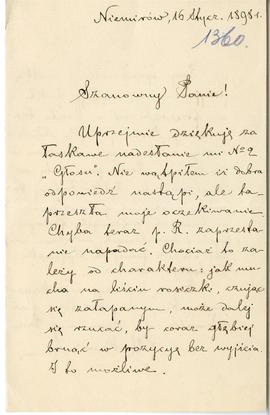 Niemirów, 16 Stycz. 1898 r.
1360.
Szanowny Panie!
Uprzejmie dziękuję za
łaskawe nadesłanie mi No 2
„Głosu”. Nie wątpiłem iż dobra
odpowiedź nastąpi, ale ta
przeszła moje oczekiwanie.
Chyba teraz p. R. zaprzesta-
nie napadać. Chociaż to za-
leży od charakteru: jak mu-
cha na liściu rosiczki, czując
się załapanym, może dalej
się rzucać, by coraz głębiej
brnąć w pozycyę bez wyjścia.
I to możliwe.